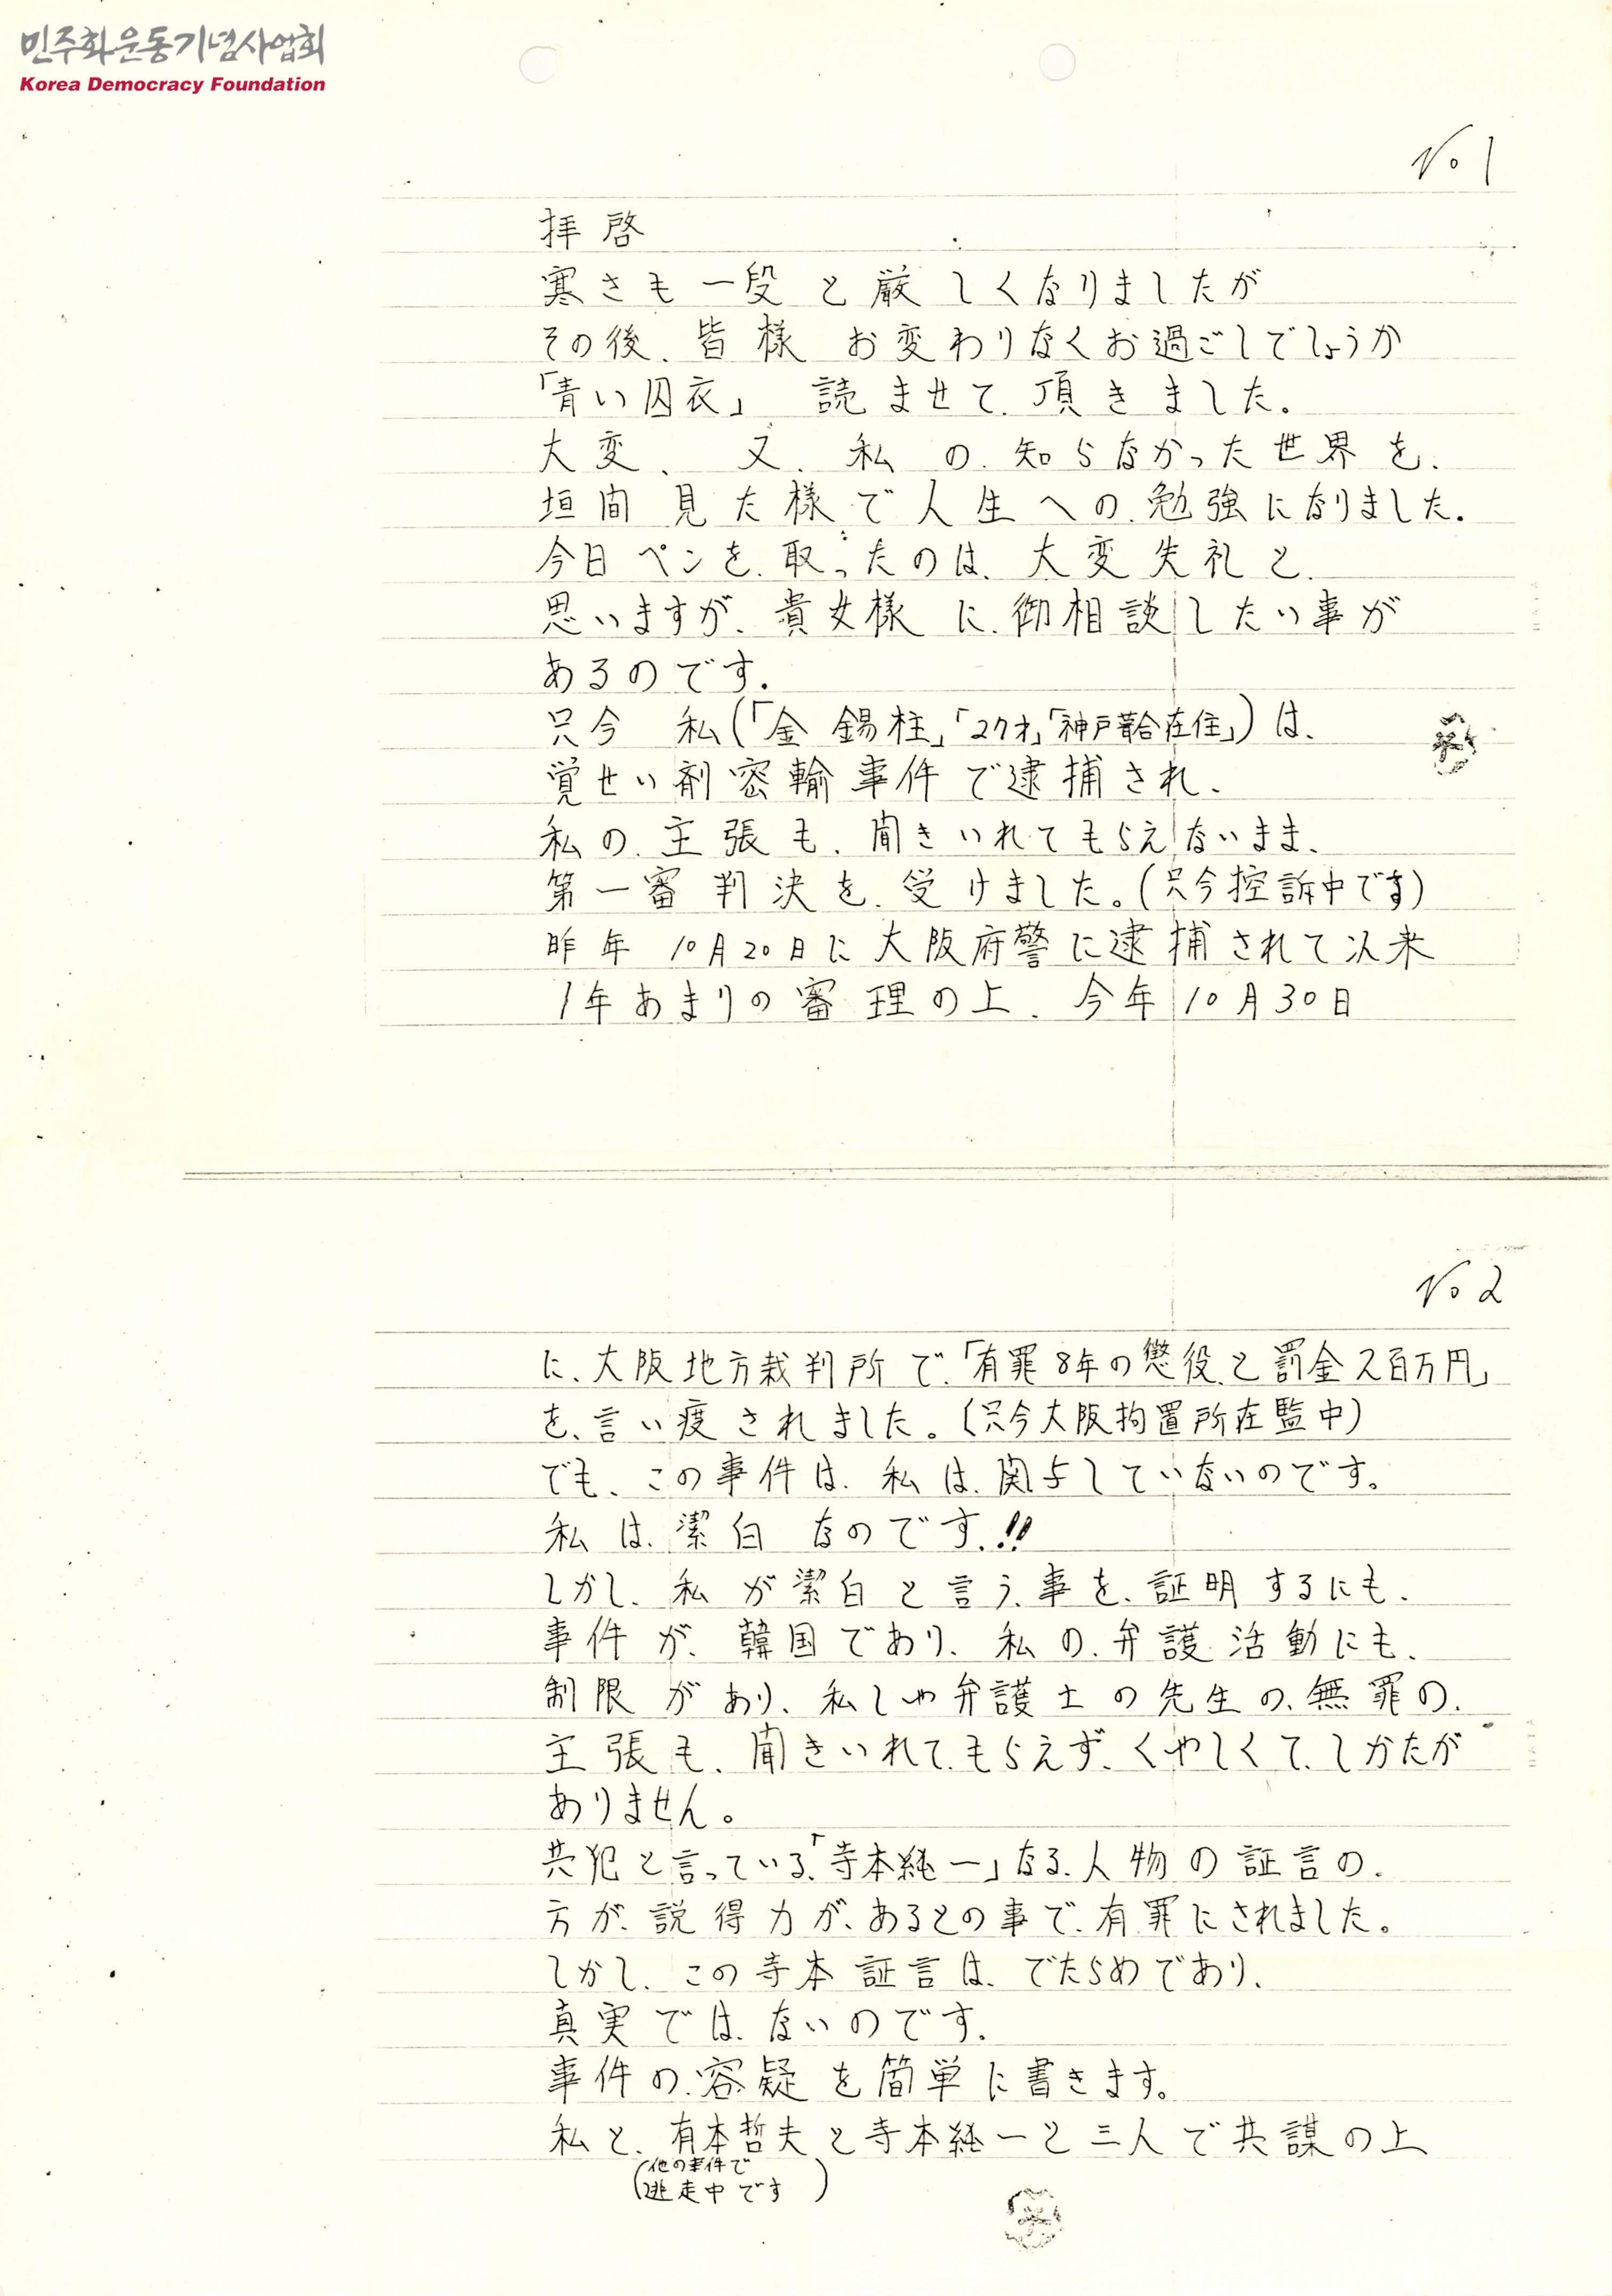 민주화운동기념사업회
Korea Democracy Foundation
No 1
拝啓
寒さも一段と厳しくなりましたが
その後、皆様 お変わりなくお過ごしでしょうか
「青い囚衣」 読ませて、頂きました。
大変、又、私の、知らなかった世界を、
垣間見た様で人生への、勉強になりました。
今日ペンを、取ったのは、大変失礼と、
思いますが、貴女様に、御相談したい事が
あるのです。
只今 私(「金 錫柱」「27才」「神戸葺合在住」)は、
覚せい剤密輸事件で逮捕され、
私の、主張も、聞きいれてもらえないまま、
第一審判決を、受けました。(只今控訴中です)
昨年 10月20日に大阪府警に逮捕されて以来
1年あまりの審理の上、今年10月30日
No 2
に、大阪地方裁判所で、「有罪8年の懲役と罰金2百万円」
を、言い渡されました。(只今大阪拘置所在監中)
でも、この事件は、私は、関与していないのです。
私は、潔白なのです。!!
しかし、私が潔白と言う、事を、証明するにも、
事件が、韓国であり、私の、弁護活動にも、
制限があり、私しや弁護士の先生の、無罪の、
主張も、聞きいれて、もらえず、くやしくて、しかたが
ありません。
共犯と言っている、「寺本純一」なる、人物の証言の、
方が、説得力が、あるとの事で、有罪にされました。
しかし、この寺本証言は、でたらめであり、
真実では、ないのです。
事件の、容疑を簡単に書きます。
私と、有本哲夫と寺本純一と三人で共謀の上
(他の事件で
逃走中です)